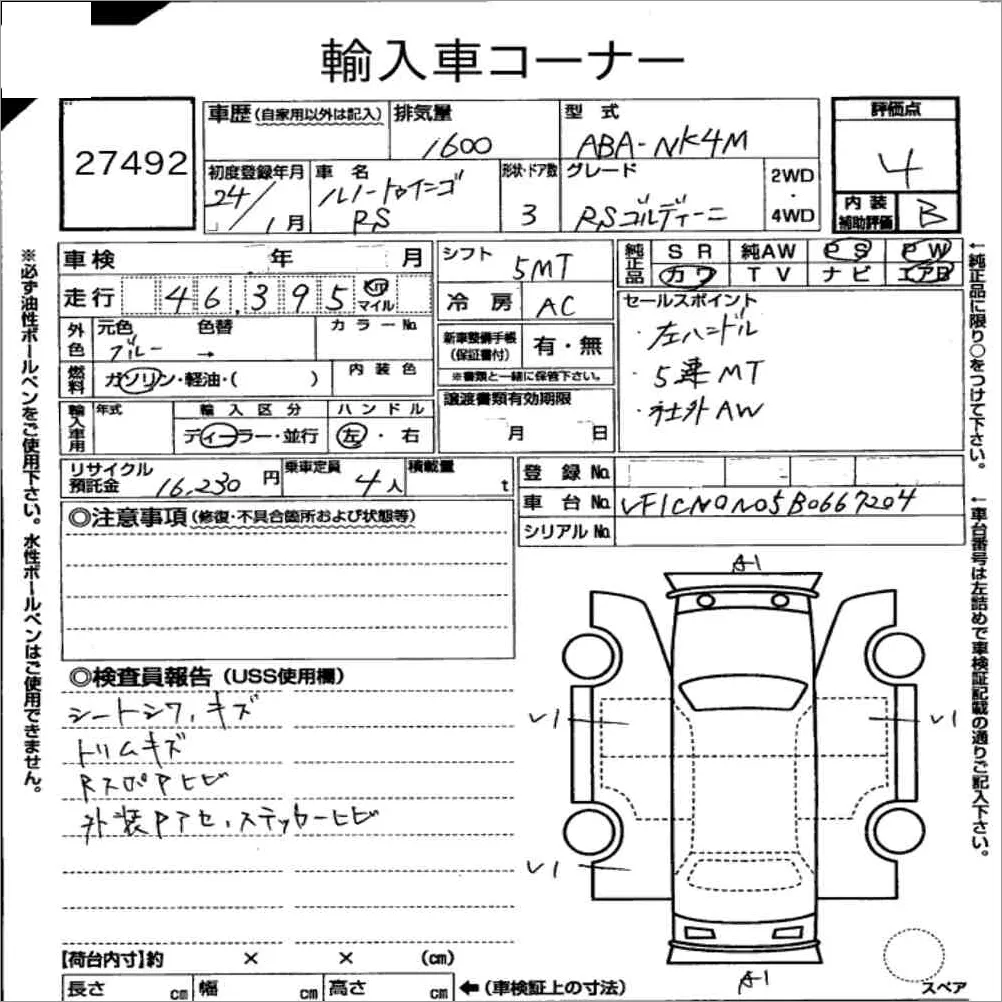 輸入車コーナー
27492
車歴(自家用以外は記入)
排気量
1600
型式
ABA-NK4M
評価点
4
初度登録年月
24/1月
車名
ルノートゥインゴ
RS
形状・ドア数
3
グレード
RSゴルディーニ
2WD
・
4WD
内装
補助評価
B
車検 年 月
走行 46,395 km マイル
外色
元色
ブルー
色替
→
カラーNo.
燃料
ガソリン・軽油・( )
内装色
輸入車用
年式
輸入区分
ディーラー・並行
ハンドル
左・右
シフト
5MT
冷房
AC
新車整備手帳
(保証書付)
有・無
※書類と一緒に保管下さい。
譲渡書類有効期限
月 日
純正品
SR 純AW PS PW
カワ TV ナビ エアB
セールスポイント
・左ハンドル
・5速MT
・社外AW
リサイクル
預託金
16,230円
乗車定員
4人
積載量
t
登録No.
車台No.
VF1CN0N05B0667204
シリアルNo.
◎注意事項(修復・不具合箇所および状態等)
◎検査員報告(USS使用欄)
シートシワ、キズ
トリムキズ
RスポPヒビ
外装Pアセ、ステッカーヒビ
A-1
V1
V1
V1
A-1
スペア
【荷台内寸】約 × × (cm)
長さ cm 幅 cm 高さ cm ←(車検証上の寸法)
※必ず油性ボールペンをご使用下さい。水性ボールペンはご使用できません。
←純正品に限り○をつけて下さい。
←車台番号は左詰めで車検証記載の通りご記入下さい。